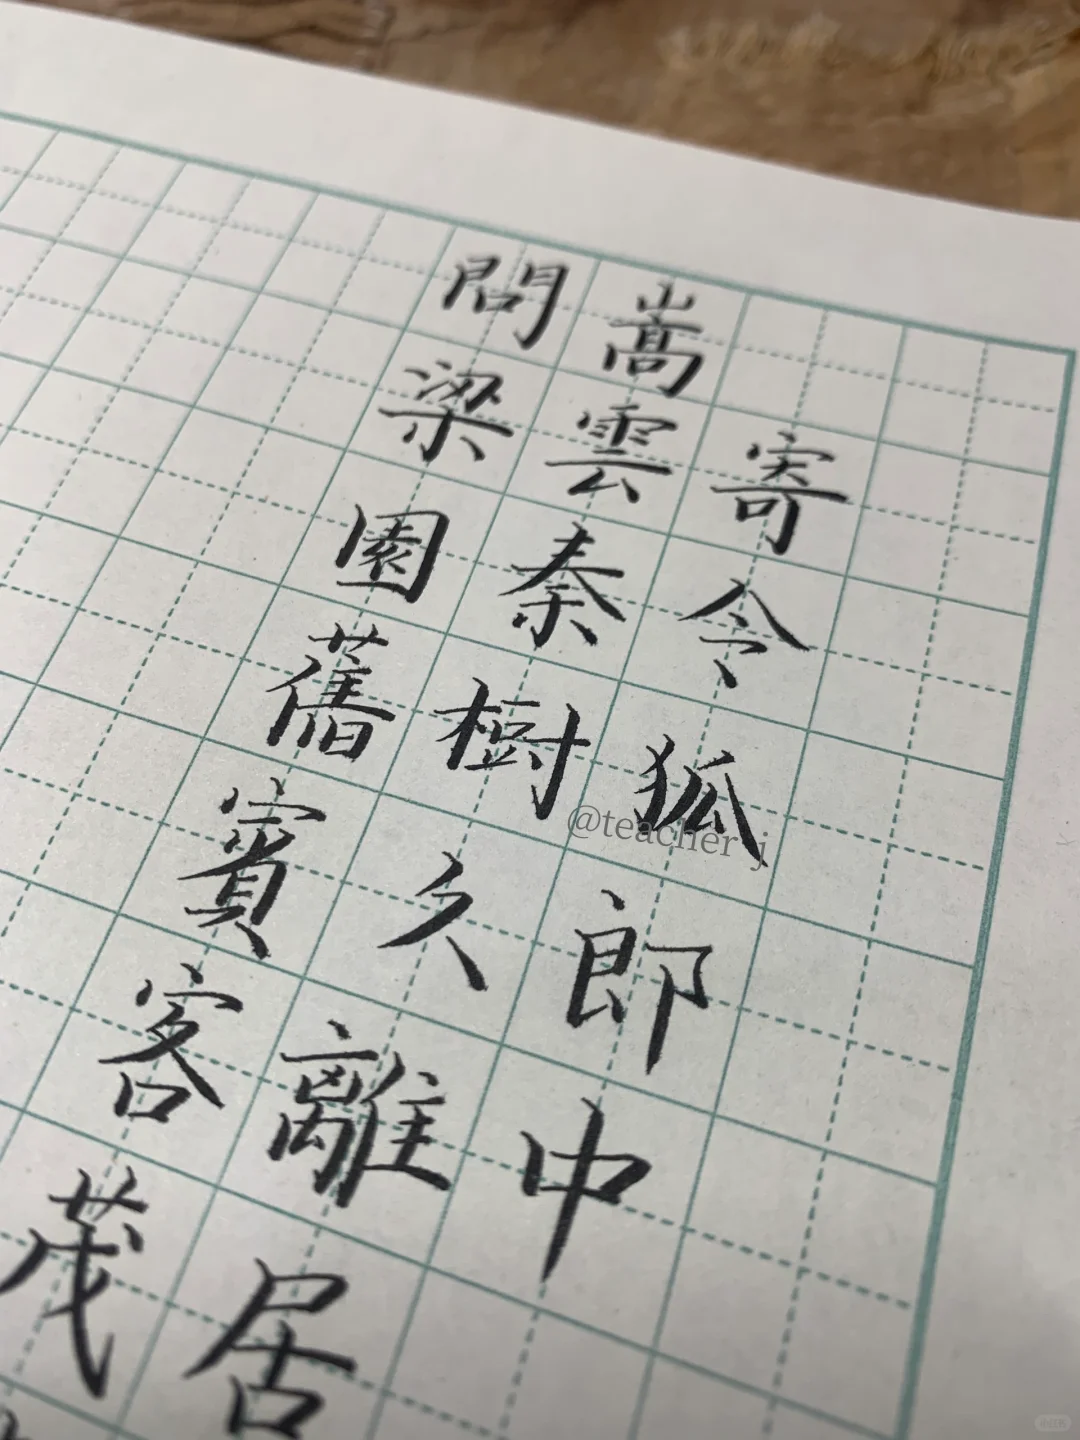 寄令狐郎中
嵩雲秦樹久離居
問梁園舊賓客茂
@teacher j